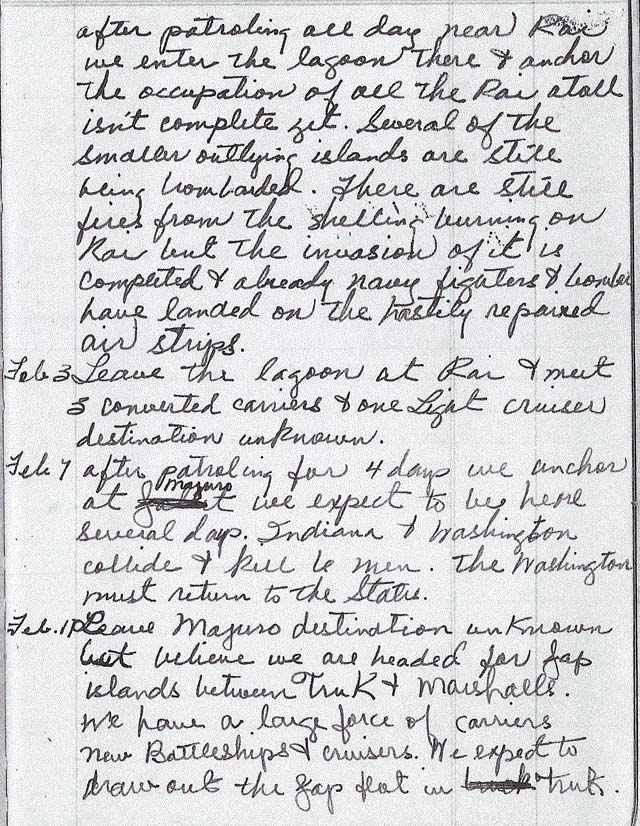 after patroling all day near Roi
we enter the lagoon there & anchor
the occupation of all the Roi atoll
isn't complete yet. Several of the
smaller outlying islands are still
being bombarded. There are still
fires from the shelling burning on
Roi but the invasion of it is
completed & already navy fighters & bomber
have landed on the hastily repaired
air strips.
Feb 3 Leave the lagoon at Roi & meet
3 converted carriers & one Light cruiser
destination unknown.
Feb 7 after patroling for 4 days we anchor
at Majuro we expect to be here
several days. Indiana & Washington
collide & kill 6 men. The Washington
must return to the States.
Feb. Leave Majuro destination unknown
but believe we are headed for Jap
islands between Truk & Marshalls.
We have a large force of carriers
new Battleships & cruisers. We expect to
draw out the Jap flot in Truk.